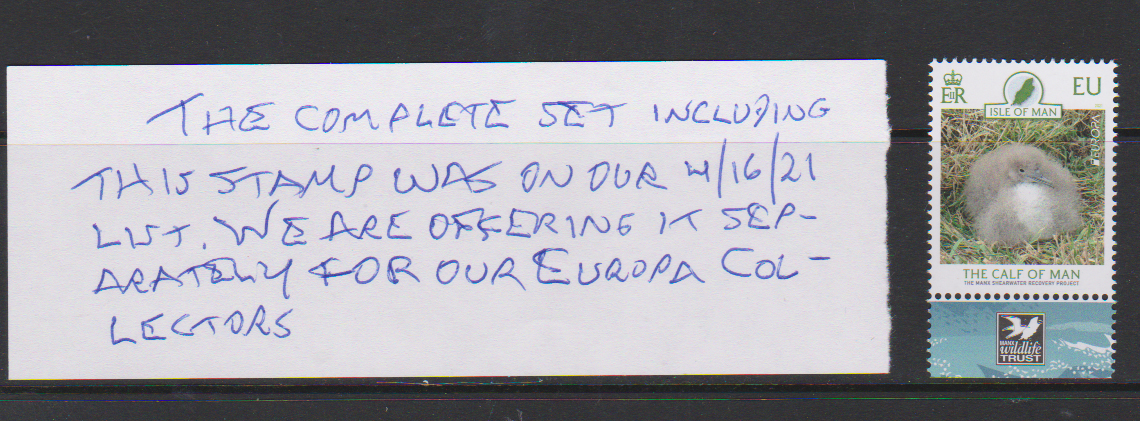 THE COMPLETE SET INCLUDING
THIS STAMP WAS ON OUR 4/16/21
LIST. WE ARE OFFERING IT SEP-
ARATELY FOR OUR EUROPA COL-
LECTORS
EIIR
EU
ISLE OF MAN
EUROPA
THE CALF OF MAN
THE MANX SHEARWATER RECOVERY PROJECT
MANX
wildlife
TRUST